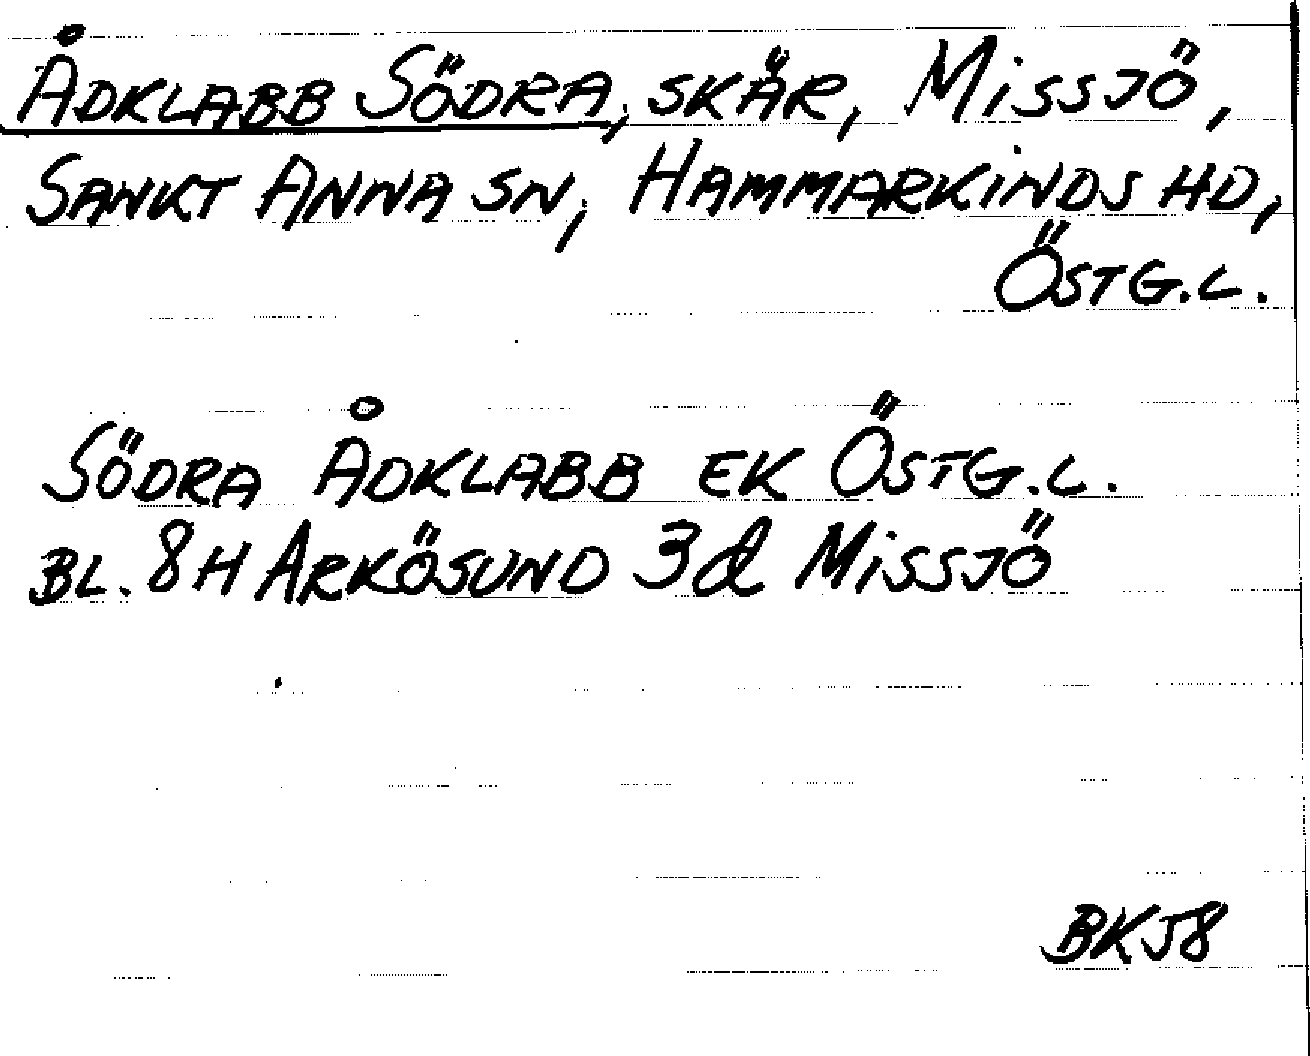 ÅDKLABB SÖDRA, SKÄR, MiSSJÖ,
SANKT ANNA SN, HAMMARKiNDS HD,
ÖSTG.L.
SÖDRA ÅDKLABB EK ÖSTG.L.
BL. 8H ARKÖSUND 3d MiSSJÖ
BKJ8